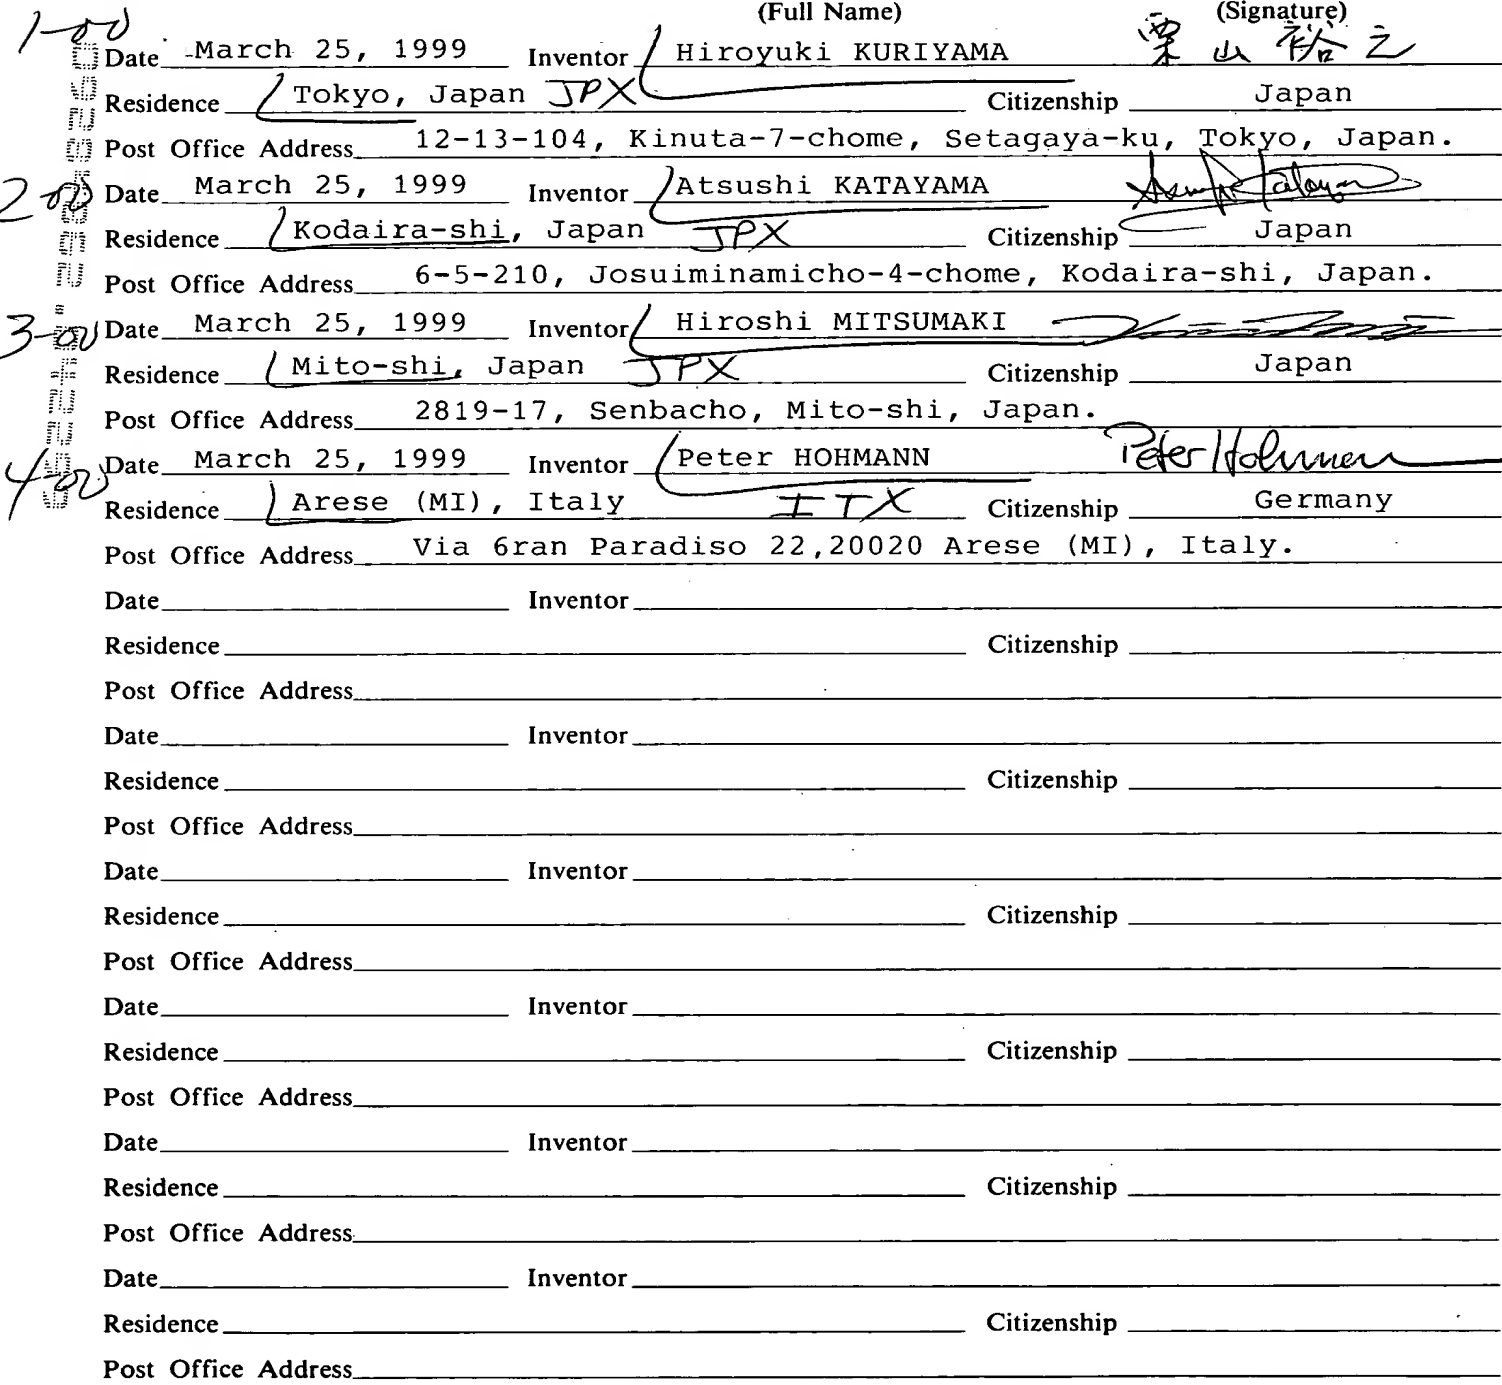 (Full Name) (Signature)
1-00
Date March 25, 1999 Inventor Hiroyuki KURIYAMA 栗山裕之
Residence Tokyo, Japan JPX Citizenship Japan
Post Office Address 12-13-104, Kinuta-7-chome, Setagaya-ku, Tokyo, Japan.
2-00 Date March 25, 1999 Inventor Atsushi KATAYAMA
Residence Kodaira-shi, Japan JPX Citizenship Japan
Post Office Address 6-5-210, Josuiminamicho-4-chome, Kodaira-shi, Japan.
3-00 Date March 25, 1999 Inventor Hiroshi MITSUMAKI
Residence Mito-shi, Japan JPX Citizenship Japan
Post Office Address 2819-17, Senbacho, Mito-shi, Japan.
4-00 Date March 25, 1999 Inventor Peter HOHMANN Peter Hohmann
Residence Arese (MI), Italy ITX Citizenship Germany
Post Office Address Via 6ran Paradiso 22,20020 Arese (MI), Italy.
Date Inventor
Residence Citizenship
Post Office Address
Date Inventor
Residence Citizenship
Post Office Address
Date Inventor
Residence Citizenship
Post Office Address
Date Inventor
Residence Citizenship
Post Office Address
Date Inventor
Residence Citizenship
Post Office Address
Date Inventor
Residence Citizenship
Post Office Address